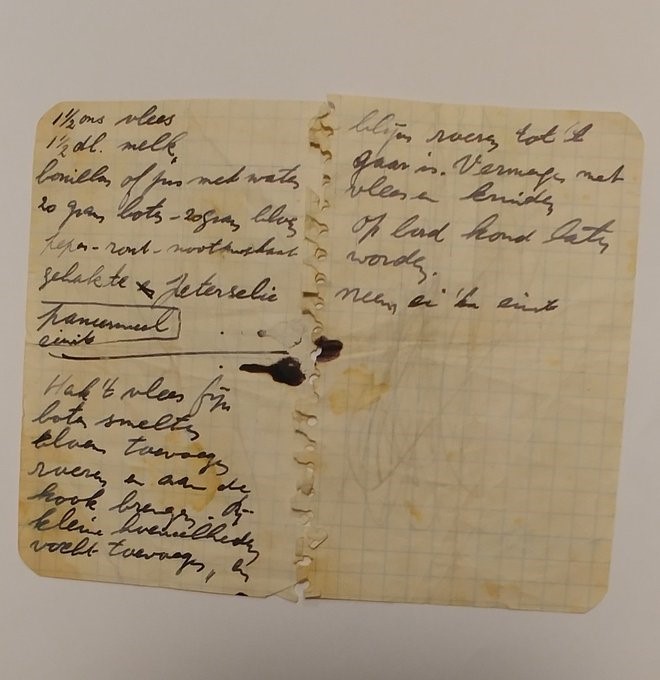 1½ ons vlees
1½ dl. melk
bouillon of jus met water
20 gram boter - 20 gram bloem
peper - zout - nootmuskaat
gehakte peterselie
paneermeel
eiwit
Hak 't vlees fijn
boter smelten
bloem toevoegen
roeren en aan de
kook brengen. Bij
kleine hoeveelheden
vocht toevoegen, en
blijven roeren tot 't
gaar is. Vermengen met
vlees en kruiden
Op bord koud laten
worden.
Neem ei 'tn eiwit